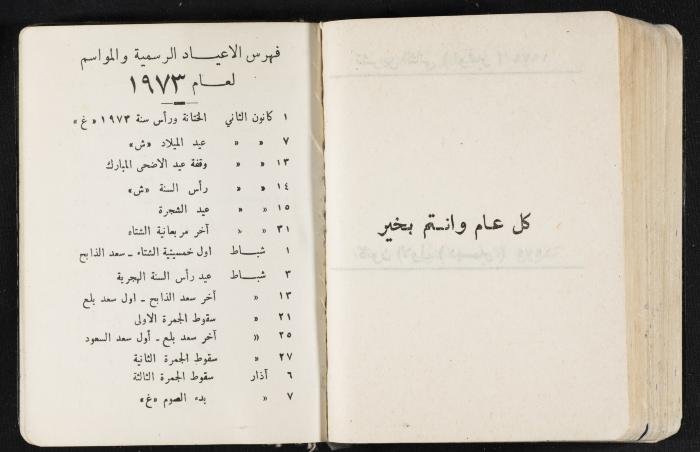 فهرس الاعياد الرسمية والمواسم
لعام ١٩٧٣
١ كانون الثاني الختانة ورأس سنة ١٩٧٣ «غ»
٧ » » عيد الميلاد «ش»
١٣ » » وقفة عيد الاضحى المبارك
١٤ » » رأس السنة «ش»
١٥ » » عيد الشجرة
٣١ » » آخر مربعانية الشتاء
١ شباط اول خمسينية الشتاء - سعد الذابح
٣ شباط عيد رأس السنة الهجرية
١٣ » آخر سعد الذابح - اول سعد بلع
٢١ » سقوط الجمرة الاولى
٢٥ » آخر سعد بلع - أول سعد السعود
٢٧ » سقوط الجمرة الثانية
٦ آذار سقوط الجمرة الثالثة
٧ » بدء الصوم «غ»
كل عام وانتم بخير